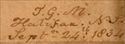 T. G. M.
Halifax, N.S.
Sept. 24th 1834